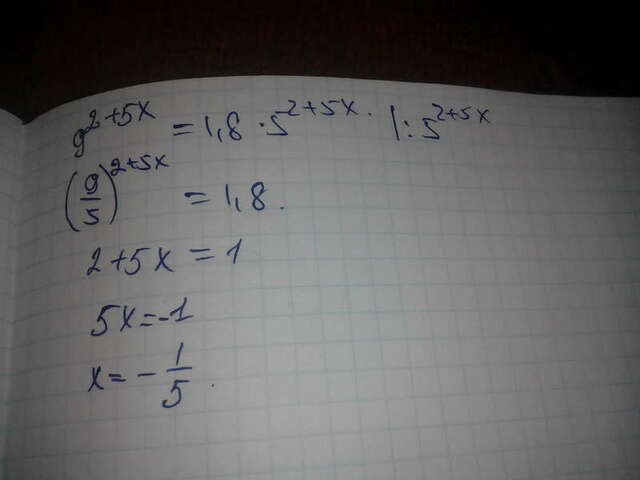 9^{2+5x} = 1,8 · 5^{2+5x}. |: 5^{2+5x}
(9/5)^{2+5x} = 1,8.
2+5x = 1
5x = -1
x = - 1/5.